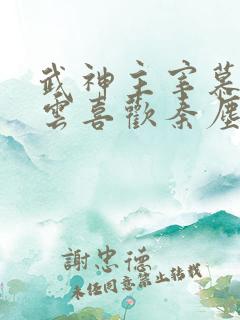 武神主宰慕
雲喜歡秦塵
謝忠德
未經同意禁止轉載